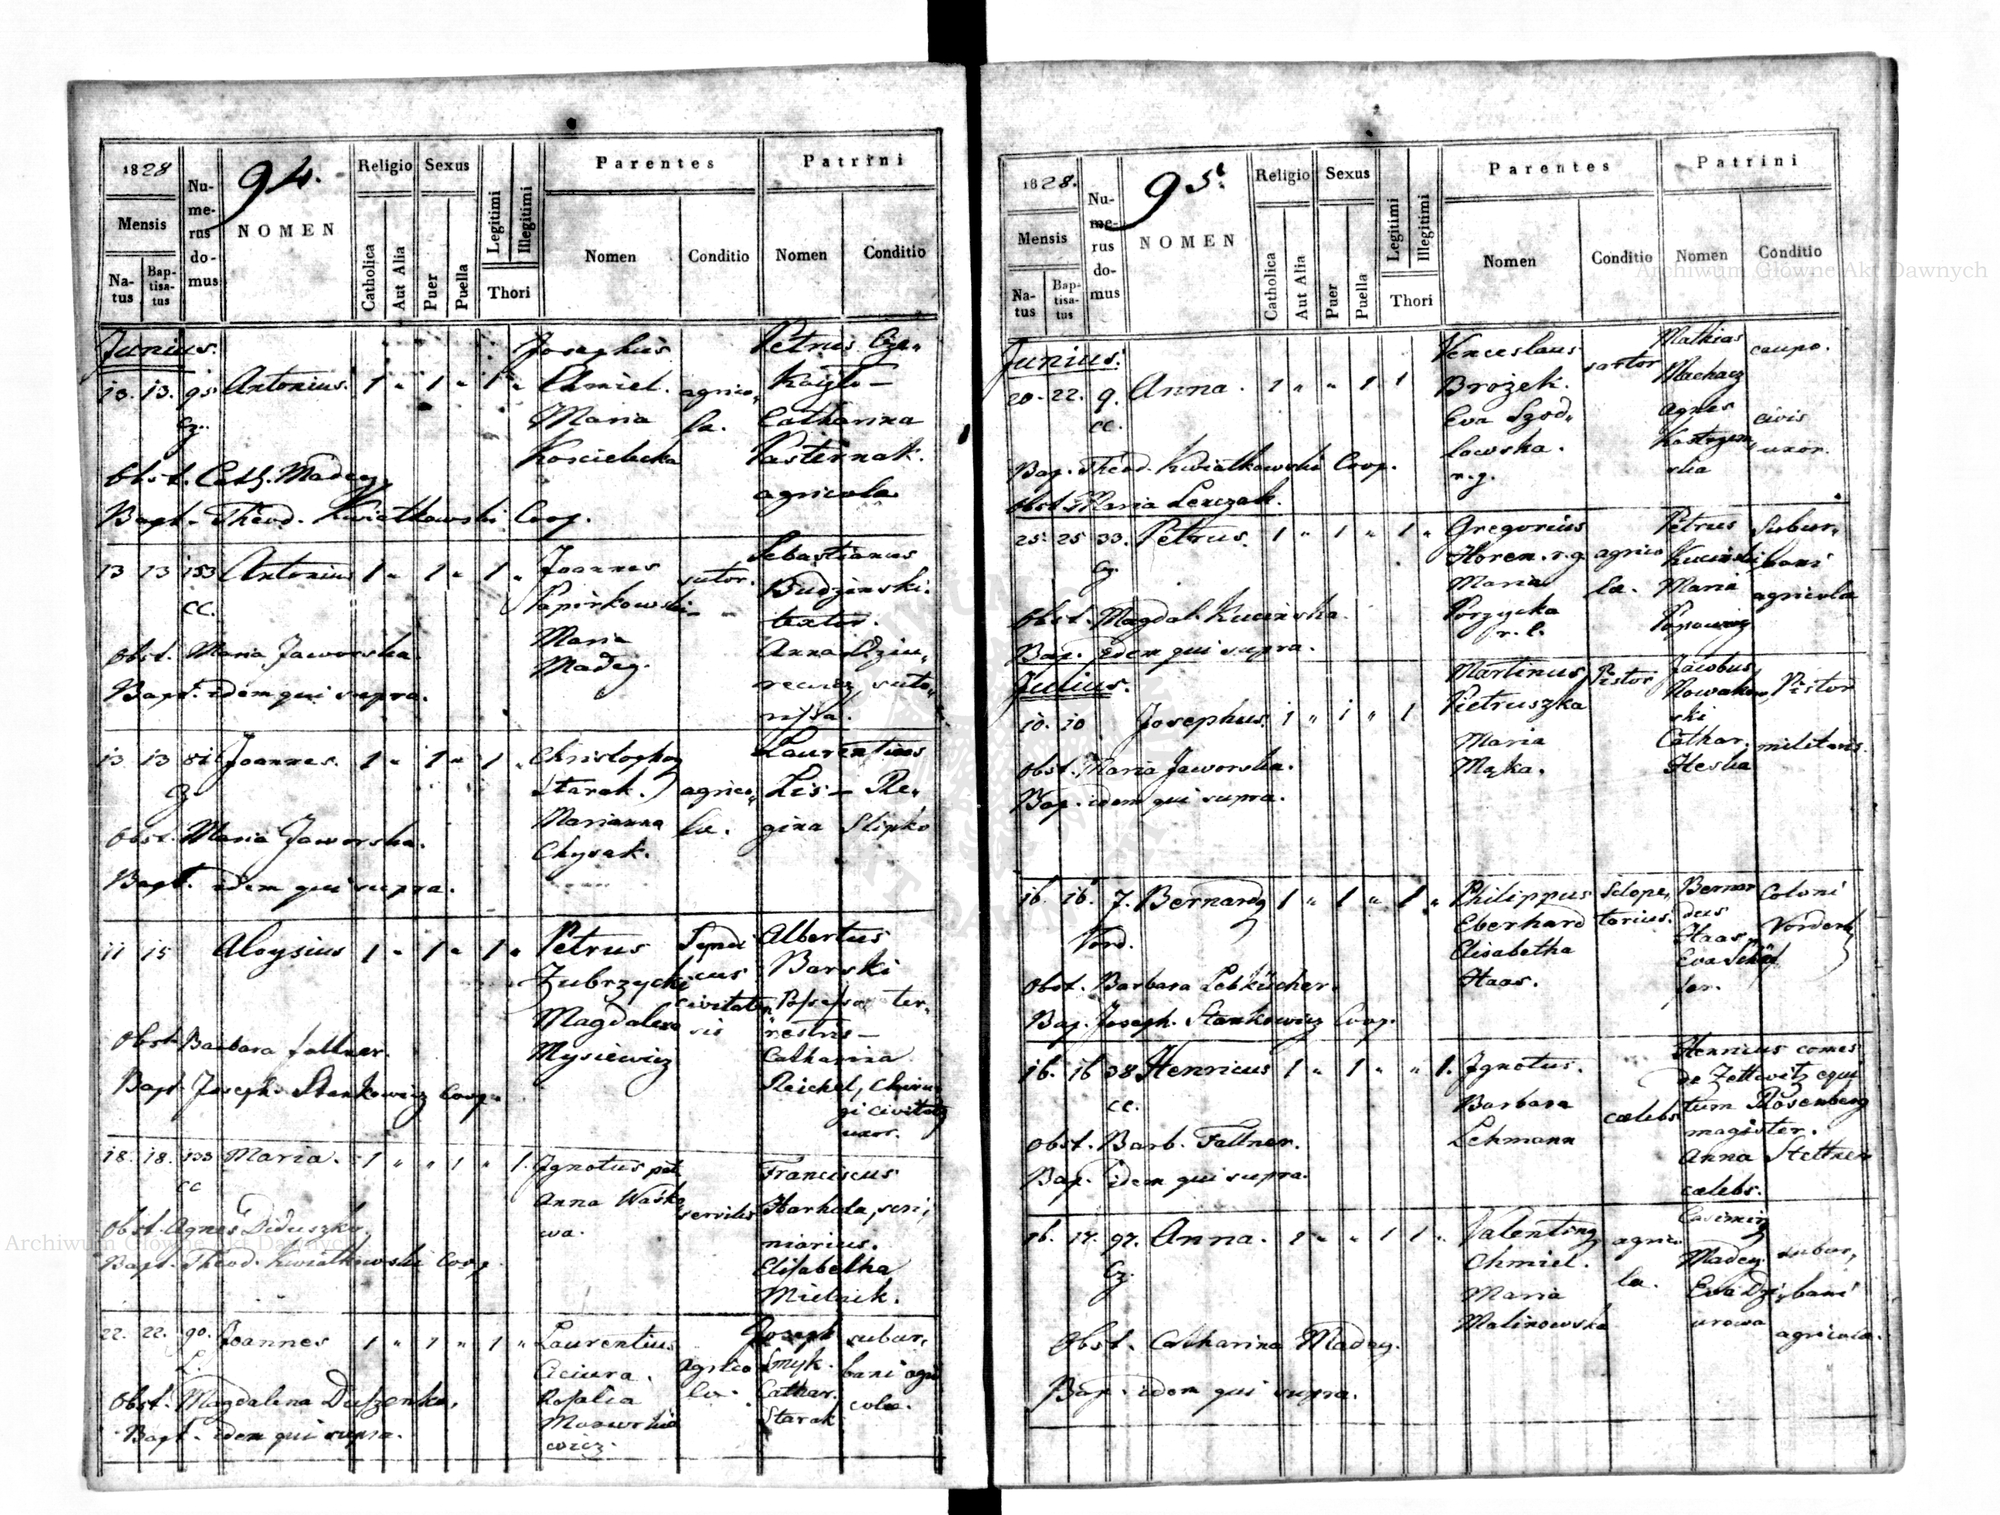 1828
94.
Religio Sexus
Parentes
Patrini
Mensis
Nu-
me-
rus
do-
mus
NOMEN
Catholica
Aut Alia
Puer
Puella
Legitimi
Illegitimi
Thori
Nomen
Conditio
Nomen
Conditio
Na-
tus
Bap-
tisa-
tus
Junius.
13. 13. 95 Antonius. 1 „ 1 „ 1 „
Josephus
Chmiel.
Maria
Kościelecka
agrico„
la.
Petrus
Catharina
Pasternak.
agricola
Obst. Cath. Madey
Bapt. Theod. Kwiatkowski Coop.
13 13 153 Antonius 1 „ 1 „ 1 „
cc.
Joannes
Papirkowski
Maria
Madey.
sutor.
Sebastianus
Budzinski.
textor.
Anna
Obst. Maria Jaworska.
Bapt. idem qui supra.
13 13 Joannes. 1 „ 1 „ 1 „
Starak.
Marianna
Chysak.
agrico„
la.
Laurentius
Lis – Re„
gina Slipko
Obst. Maria Jaworska.
Bapt. idem qui supra.
11 15 Aloysius 1 „ 1 „ 1 „
Petrus
Zubrzycki
Magdalena
Mysiewicz
Syndi
cus
civitaten
sis
Albertus
Barski
Possessor ter„
restris –
Catharina
Reichel, Chirur
gi civitatis
uxor.
Obst. Barbara Fallner.
Bapt. Joseph. Stankowicz Coop.
18. 18. 133 Maria. 1 „ „ 1 „ 1.
cc
Ignotus pat.
Anna Waśko
wa.
servilis
Franciscus
Harhala, scri„
niarius.
Elisabetha
Mielnik.
Obst. Agnes Diduszko
Bapt. Theod. Kwiatkowski Coop.
22. 22. 90. Joannes 1 „ 1 „ 1 „
L.
Laurentius
Ciciura.
Rosalia
agrico
la.
Joseph
Smyk.
Cathar.
Starak
subur„
bani agri
colae.
Obst. Magdalena Duszenko.
Bapt. idem qui supra.
1828.
95.
Religio Sexus
Parentes
Patrini
Mensis
Nu-
me-
rus
do-
mus
NOMEN
Catholica
Aut Alia
Puer
Puella
Legitimi
Illegitimi
Thori
Nomen
Conditio
Nomen
Conditio
Na-
tus
Bap-
tisa-
tus
Junius.
20. 22. 9. Anna. 1 „ „ 1 1
cc.
Venceslaus
Brożek.
Eva Szod„
lowska.
r.g.
sartor
Mathias
Machacz
Agnes
caupo.
civis
uxor.
Bap. Theod. Kwiatkowski Coop.
Obst. Maria Lenczak.
25. 25 33. Petrus. 1 „ 1 „ 1 „
Gregorius
Horen. r.g.
Maria
Porzycka
r.l.
agrico
la.
Petrus
Kucinski
Maria
Subur„
bani
agricola
Obst. Magdal. Kucinska.
Bap. Idem qui supra.
Julius.
10. 10 Josephus. 1 „ 1 „ 1
Martinus
Pietruszka
Maria
Mąka.
Pistor
Jacobus
Nowakow„
ski
Cathar.
Heska
Pistor
militaris.
Obst. Maria Jaworska.
Bap. idem qui supra.
16. 16. 7. Bernardus 1 „ 1 „ 1 „
Vord.
Philippus
Eberhard
Elisabetha
Haas.
Sclope„
tarius.
Bernar
dus
Haas
Eva Schäf
fer.
Coloni
Obst. Barbara Lebküscher.
Bap. Joseph. Stankowicz Coop.
16. 16 38 Henricus 1 „ 1 „ „ 1.
cc.
Ignotus.
Barbara
Lehmann
caelebs
Henricus comes
de Zettwitz equi
tum Rosenberg
magister.
Anna Stettner
caelebs.
Obst. Barb. Fallner.
Bap. idem qui supra.
16. 17. 97. Anna. 1 „ „ 1 1 „
Valentinus
Chmiel.
Maria
Malinowska
agrico
la.
Casimirus
Madey.
Eva
subur„
bani
agricola.
Obst. Catharina Madey.
Bap. idem qui supra.
Archiwum Główne Akt Dawnych
Archiwum Główne Akt Dawnych